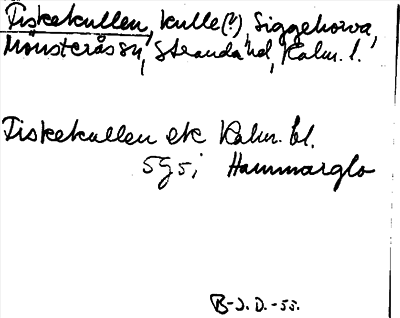 Fiskekullen, kulle(?), Siggehorva,
Mönsterås sn, Stranda hd, Kalm. l.
Fiskekullen ek Kalm. bl.
5g5i Hammarglo
B-J. D. -55.